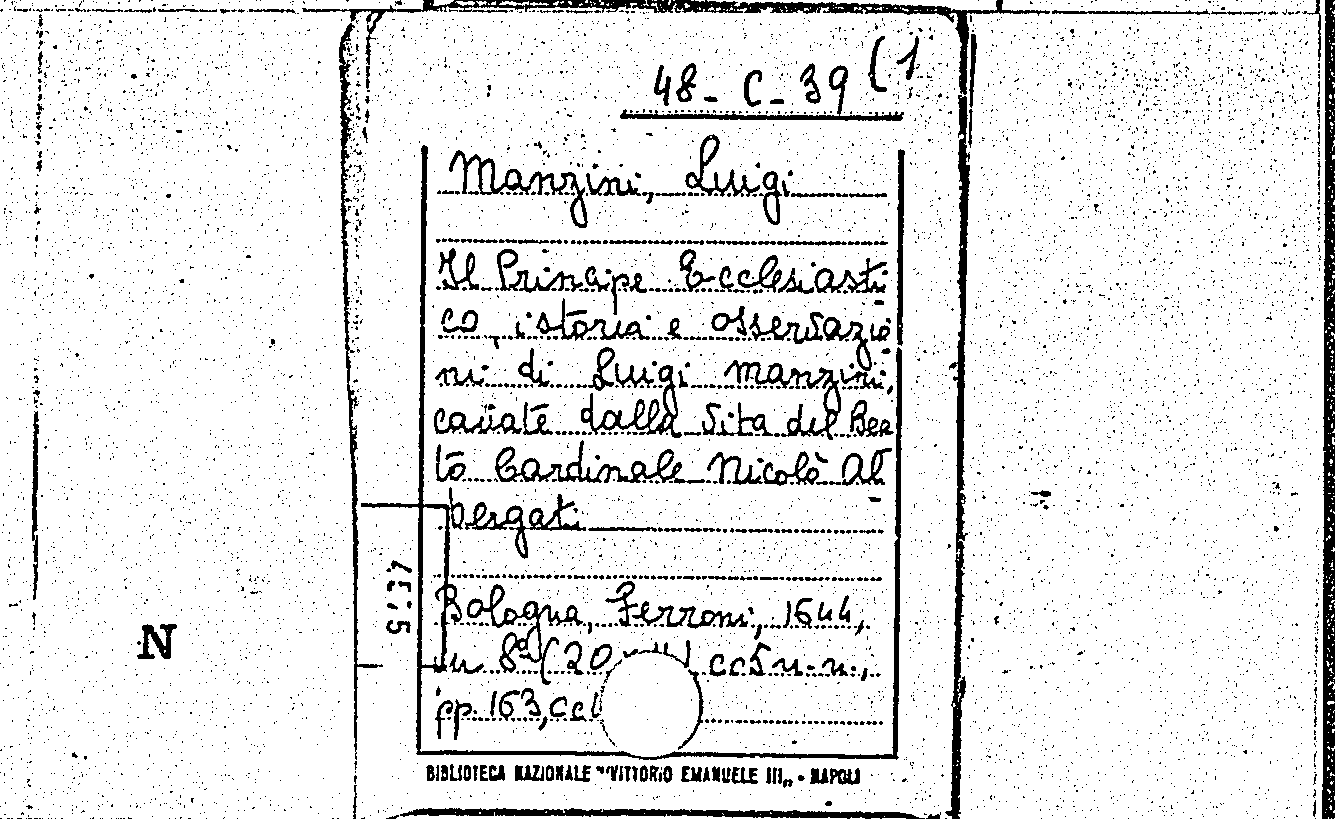 48 - C - 39 (1
Manzini, Luigi
Il Principe Ecclesiasti
co, istoria e osservazio
ni di Luigi Manzini,
cavate dalla vita del Bea
to Cardinale Nicolò Al
bergati
Bologna, Ferroni, 1644,
in 8º (20 cc 5 n.n.,
pp. 163, cc
N
BIBLIOTECA NAZIONALE "VITTORIO EMANUELE III„ - NAPOLI